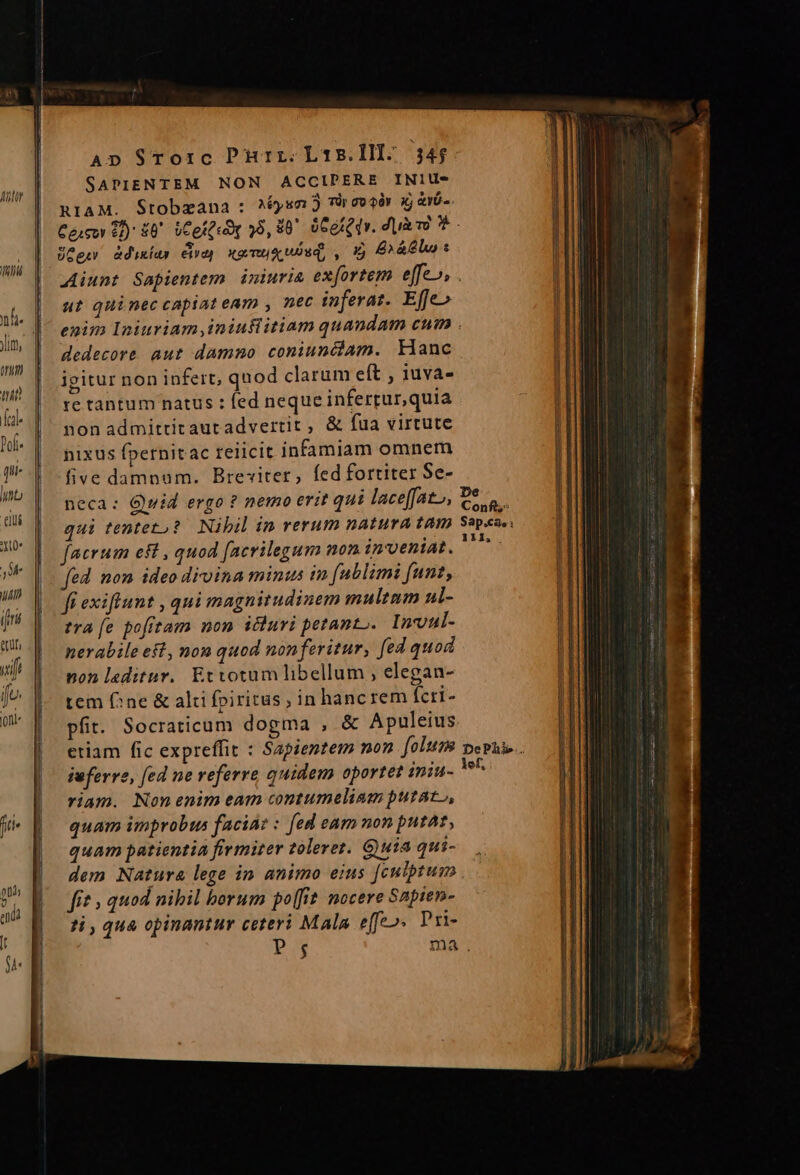 AD STOIC PHIL. LIB. III. 345
SAPIENTEM NON ACCIPERE INIU-
RIAM. Stobæana : λέγουσι ὃ τὸν σοφὸν ϗ ἀνύ-
βριστον ἔ͂ι)· ἔθ᾽ ὑβρίζεϑς γδ, ἔθ᾽ ὑβρίζ{ν. διὰ τὸ τ̀
ὕβριν ἀδικίαν εἶναι καταισχύνουσαν , ϗ βλάβην :
Aiunt Sapientem iniuria exſortem eſſe,
ut qui nec capiat eam , nec inferat. Eſſe
enim Iniuriam, iniuſtitiam quandam cum
dedecore aut damno coniunctam. Hanc
igitur non infert, quod clarum eſt , iuva-
re tantum natus : ſed neque infertur, quia
non admittit aut advertit , & ſua virtute
nixus ſpernit ac reiicit infamiam omnem
ſive damnum. Breviter, ſed fortiter Se-
neca : Quid ergo ? nemo erit qui laceſſat,
De
Conſt.
qui tentet? Nihil in rerum natura tam
Sap. ca.
ſacrum eſt , quod ſacrilegum non inveniat.
III.
ſed non ideo divina minus in ſublimi ſunt,
ſi exiſtunt , qui magnitudinem multum ul-
tra ſe poſitam non icturi petant. Invul-
nerabile eſt, non quod non feritur, ſed quod
non læditur. Et totum libellum , elegan-
tem ſane & alti ſpiritus , in hanc rem ſcri-
pſit. Socraticum dogma , & Apuleius
etiam ſic expreſſit : Sapientem non ſolum
De Phi-
inferre, ſed ne referre quidem oportet iniu-
loſ.
riam. Non enim eam contumeliam putat,
quam improbus faciat : ſed eam non putat,
quam patientia firmiter toleret. Quia qui-
dem Naturæ lege in animo eius ſculptum
ſit , quod nihil horum poſſit nocere Sapien-
ti , quæ opinantur ceteri Mala eſſe. Pri-
P 5 ma